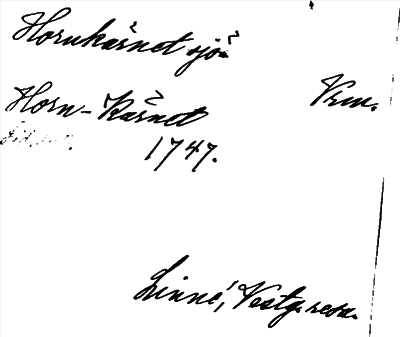 Hornkärnet sjö
Vrm.
Horn-Kärnet
1747.
Linné, Vestg. resa.